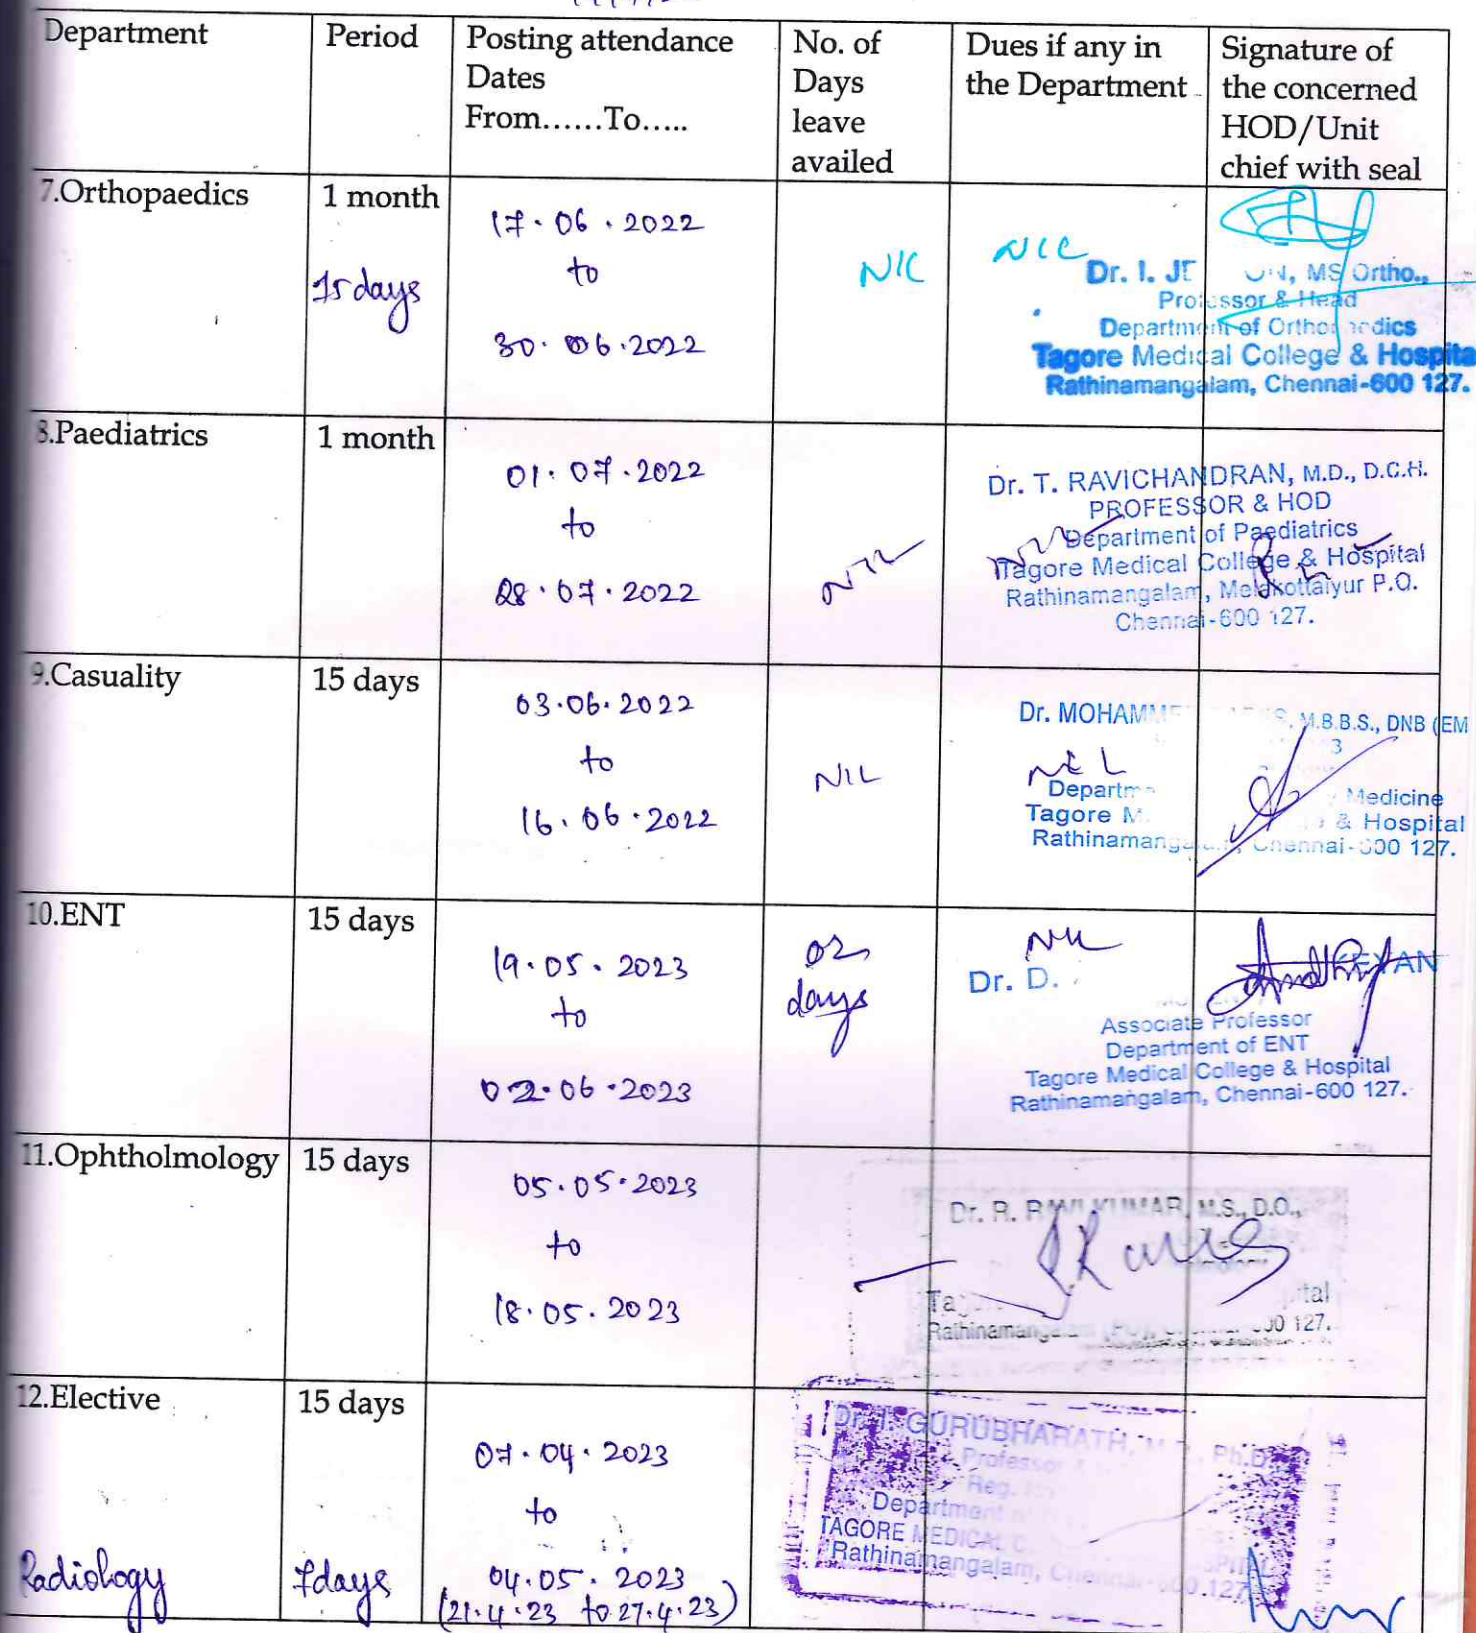 Department
Period
Posting attendance
Dates
From......To.....
No. of
Days
leave
availed
Dues if any in
the Department
Signature of
the concerned
HOD/Unit
chief with seal
7.Orthopaedics
1 month
15 days
17.06.2022
to
30.06.2022
NIL
NIL
Dr. I.
MS Ortho.,
Professor & Head
Department of Orthopaedics
Tagore Medical College & Hospita
Rathinamangalam, Chennai-600 127.
8.Paediatrics
1 month
01.07.2022
to
28.07.2022
NIL
NIL
Dr. T. RAVICHANDRAN, M.D., D.C.H.
PROFESSOR & HOD
Department of Paediatrics
Tagore Medical College & Hospital
Rathinamangalam, Melakottaiyur P.O.
Chennai-600 127.
9.Casuality
15 days
03.06.2022
to
16.06.2022
NIL
NIL
Dr.
M.B.B.S., DNB (EM
3
Medicine
Tagore
& Hospital
Chennai-600 127.
10.ENT
15 days
19.05.2023
to
02.06.2023
02
days
Nil
Dr. D.
Associate Professor
Department of ENT
Tagore Medical College & Hospital
Rathinamangalam, Chennai-600 127.
11.Ophtholmology
15 days
05.05.2023
to
18.05.2023
Dr. R. RAVI KUMAR, M.S., D.O.,
127.
12.Elective
15 days
Radiology
7 days
07.04.2023
to
04.05.2023
(21.4.23 to 27.4.23)
GURUBHARATH,
Ph.D
Professor
Reg.
Department
TAGORE MEDICAL
Rathinamangalam, Chennai-600.127